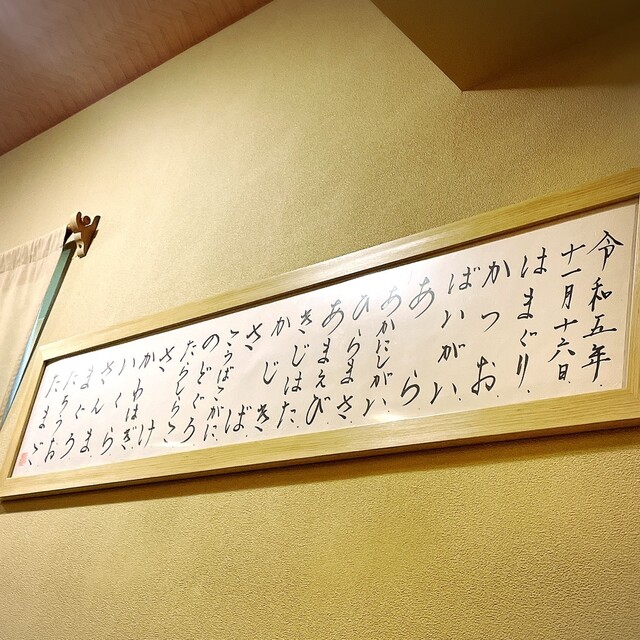 令和五年
十一月十六日
はまぐり
かつお
ばいがい
あら
あかにしがい
ひらまさ
あまえび
きじはた
かじき
さば
こうばこがに
のどぐろ
たらしらこ
さけ
かわはぎ
いくら
さんま
まぐろ
たちうお
たまご